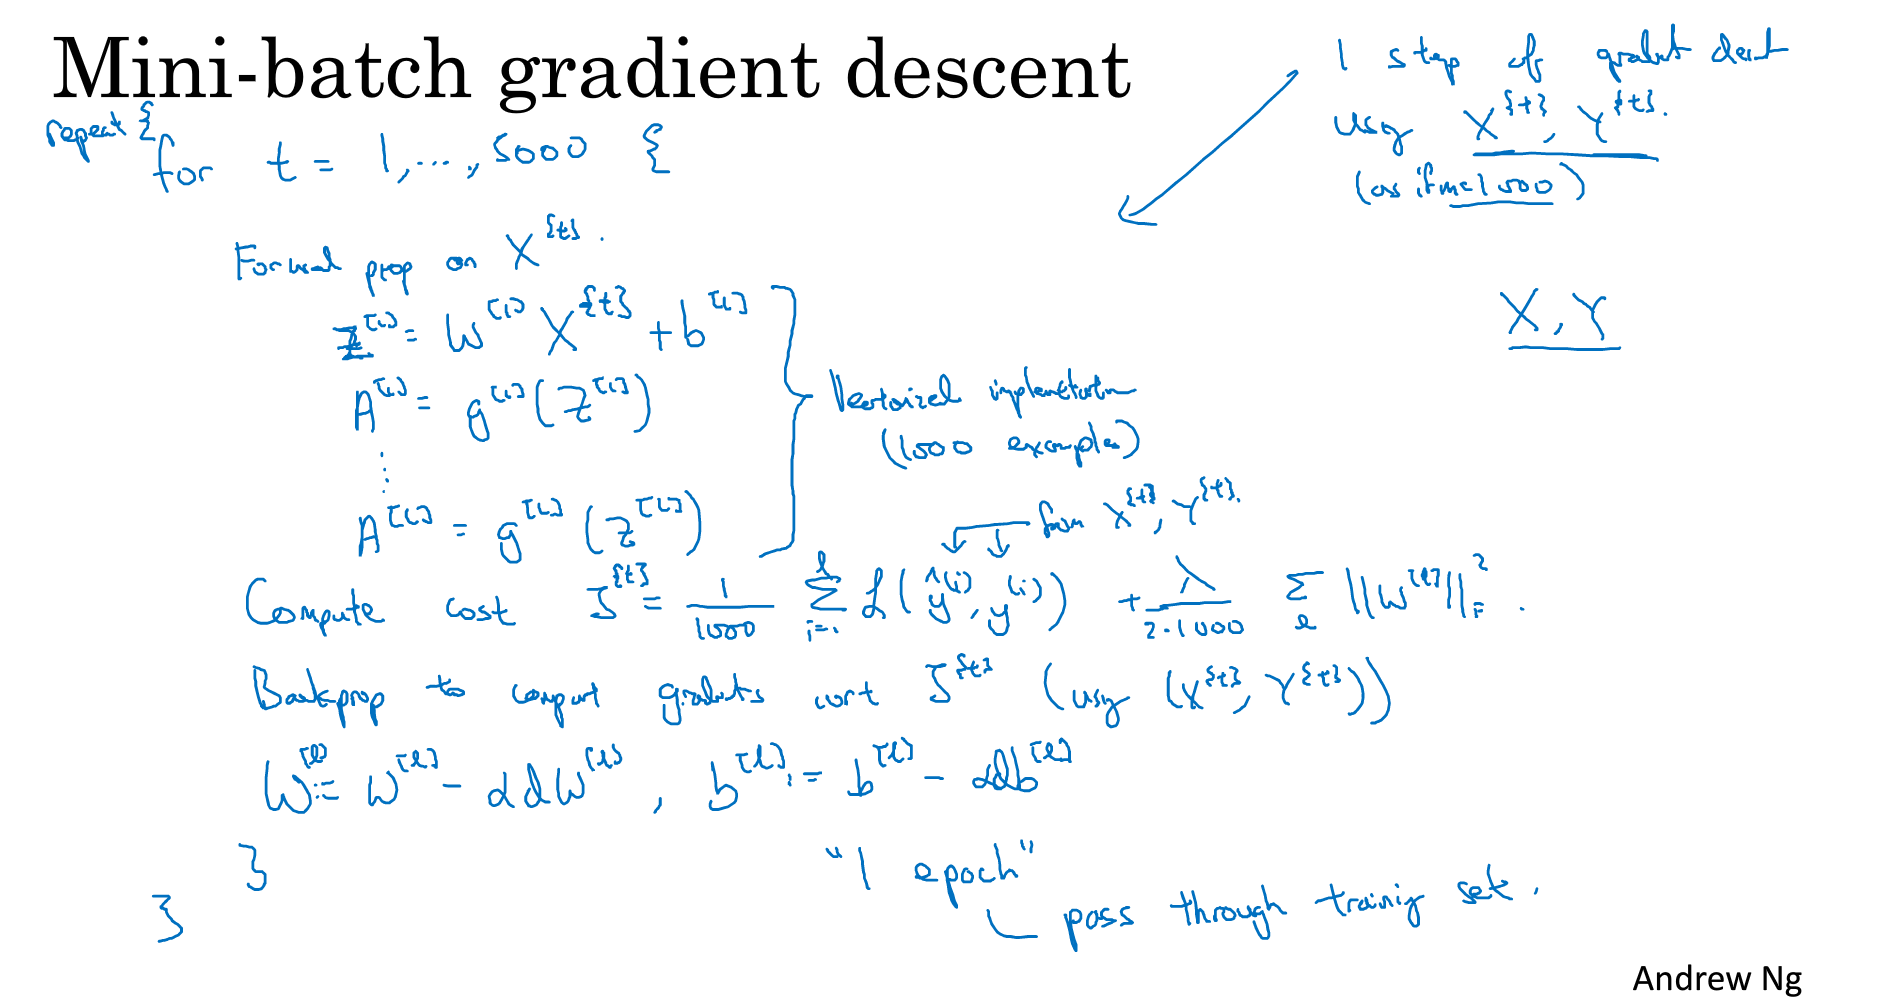 Mini-batch gradient descent
1 step of gradient descent
using X^{t}, Y^{t}.
(as if m=1000)
repeat {
for t = 1,..., 5000 {
X, Y
Forward prop on X^{t}.
Z^[1] = W^[1] X^{t} + b^[1]
A^[1] = g^[1](Z^[1])
Vectorized implementation
(1000 examples)
⋮
A^[L] = g^[L](Z^[L])
from X^{t}, Y^{t}.
Compute cost J^{t} = 1/1000 ∑_{i=1}^{l} L(ŷ^(i), y^(i)) + λ/(2·1000) ∑_l ||W^[l]||_F^2.
Backprop to compute gradients wrt J^{t} (using (X^{t}, Y^{t}))
W^[l] := W^[l] - αdW^[l], b^[l] := b^[l] - αdb^[l]
}
"1 epoch"
}
pass through training set.
Andrew Ng